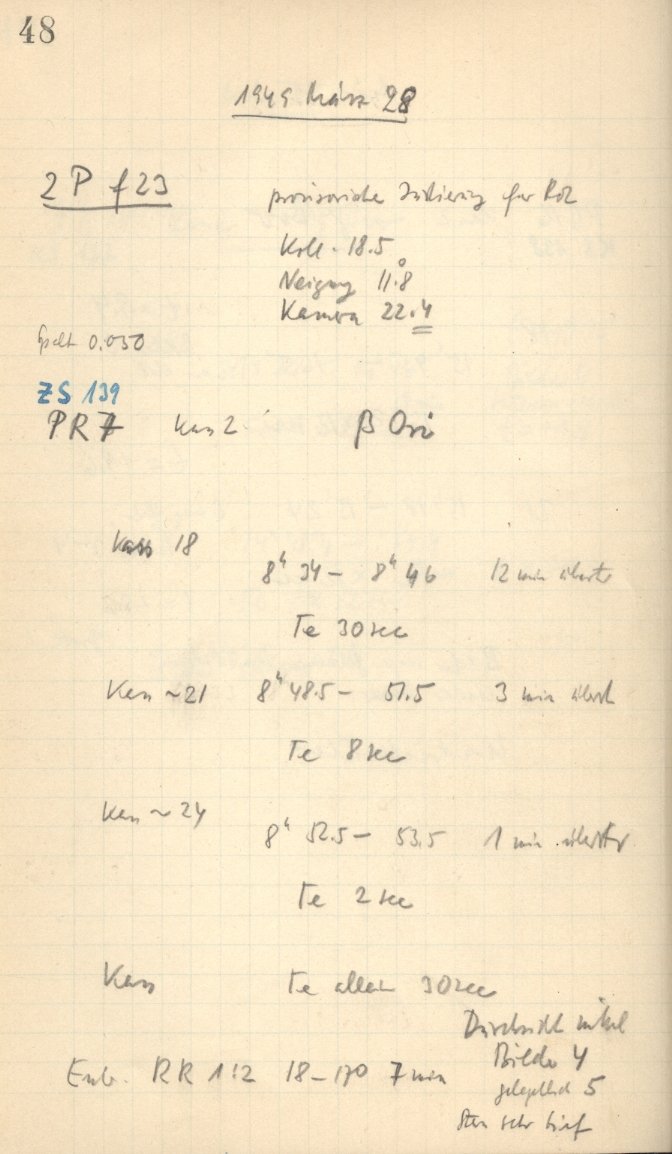 48
1949 März 28
2 P f 23
provisorische Justierung für Rot
Koll. 18.5
Neigung 11.°8
Kamera 22.4
Spalt 0.050
ZS 139
PR 7 Kass 2 β Ori
Kass 18
8ʰ 34 – 8ʰ 46 12 min
Te 30 sec
Kass ~21 8ʰ 48.5 – 51.5 3 min
Te 8 sec
Kass ~24
8ʰ 52.5 – 53.5 1 min
Te 2 sec
Kass Te allein 30 sec
Durchsicht mittel
Bilder 4
gelegentlich 5
Stern sehr tief
Entw. RR 1:2 18 – 17° 7 min